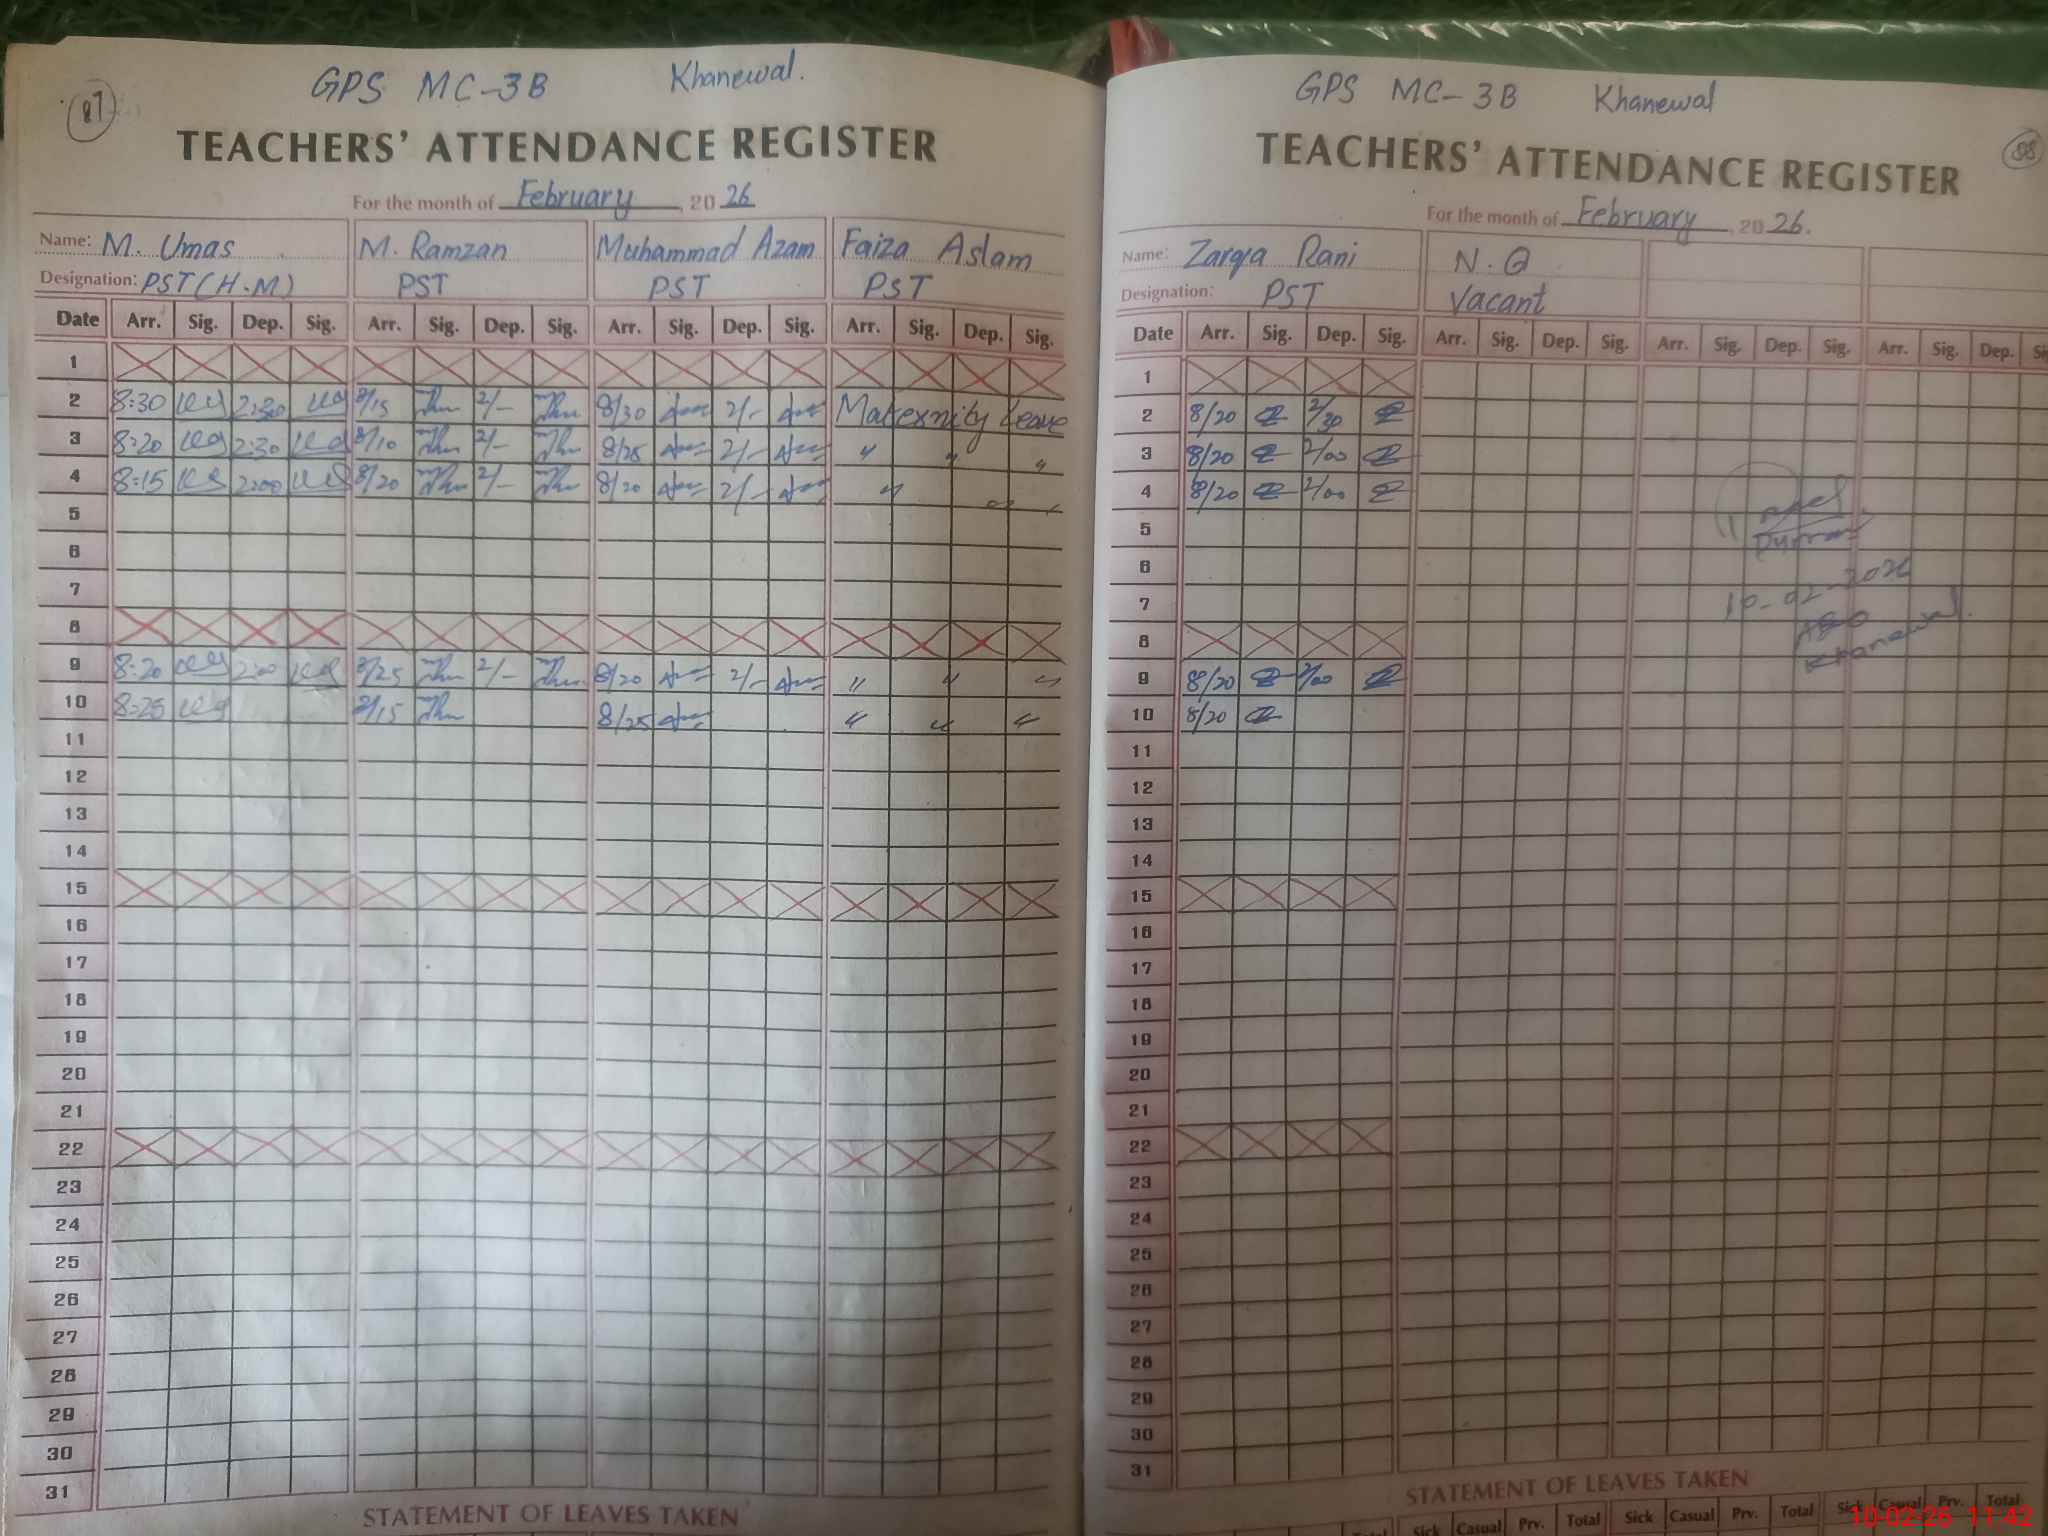 87
GPS MC-3B Khanewal.
TEACHERS' ATTENDANCE REGISTER
For the month of February, 2026
Name: M. Umas M. Ramzan Muhammad Azam Faiza Aslam
Designation: PST (H.M) PST PST PST
Date Arr. Sig. Dep. Sig. Arr. Sig. Dep. Sig. Arr. Sig. Dep. Sig. Arr. Sig. Dep. Sig.
1
2 8:30 2:30 8/15 2/- 8/30 2/- Maternity Leave
3 8:20 2:30 8/10 2/- 8/25 2/- " " "
4 8:15 2:00 8/20 2/- 8/20 2/- " " "
5
6
7
8
9 8:20 2:00 8/25 2/- 8/20 2/- " " "
10 8:25 8/15 8/25 " " "
11
12
13
14
15
16
17
18
19
20
21
22
23
24
25
26
27
28
29
30
31
STATEMENT OF LEAVES TAKEN
88
GPS MC-3B Khanewal
TEACHERS' ATTENDANCE REGISTER
For the month of February, 2026.
Name: Zarqa Rani N.Q
Designation: PST Vacant
Date Arr. Sig. Dep. Sig. Arr. Sig. Dep. Sig. Arr. Sig. Dep. Sig. Arr. Sig. Dep. Si
1
2 8/20 2/30
3 8/20 2/00
4 8/20 2/00
5
6
7
8
9 8/20 2/00
10 8/20
11
12
13
14
15
16
17
18
19
20
21
22
23
24
25
26
27
28
29
30
31
10-02-2026
AEO
Khanewal.
STATEMENT OF LEAVES TAKEN
Total Sick Casual Prv. Total Sick Casual Prv. Total Sick Casual Prv. Total
10-02-26 11:42